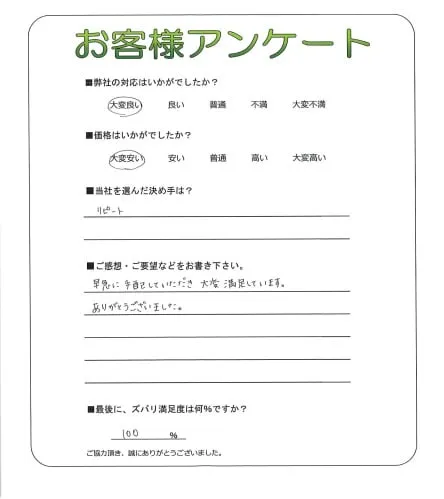 お客様アンケート
■弊社の対応はいかがでしたか？
大変良い 良い 普通 不満 大変不満
■価格はいかがでしたか？
大変安い 安い 普通 高い 大変高い
■当社を選んだ決め手は？
リピート
■ご感想・ご要望などをお書き下さい。
早急に手配していただき 大変 満足しています。
ありがとうございました。
■最後に、ズバリ満足度は何％ですか？
100 ％
ご協力頂き、誠にありがとうございました。